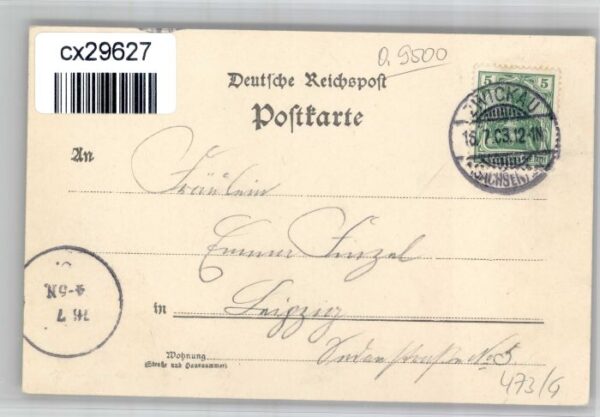 cx29627
0.9500
Deutsche Reichspost
Postkarte
5 5
ZWICKAU
16 7.03.12-1N
(SACHSEN)
An
Fräulein
Emma Finzel
in Leipzig
4-5N.
7
Wohnung
(Straße und Hausnummer)
Sedanstraße No 5
473/4